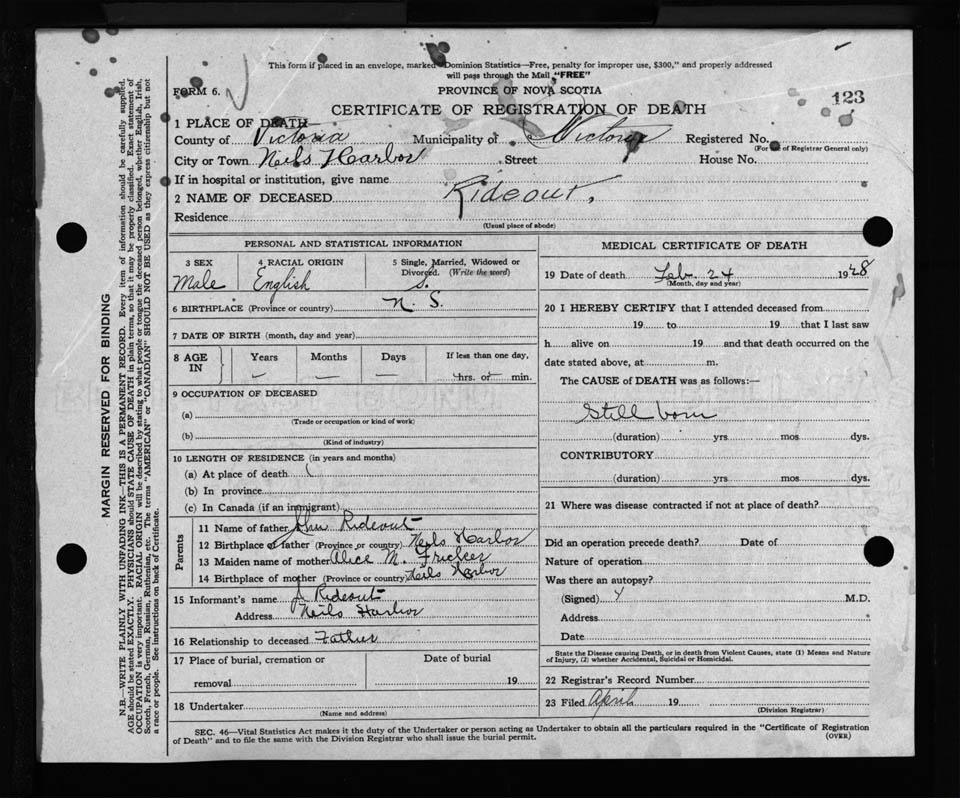 This form if placed in an envelope, marked "Dominion Statistics—Free, penalty for improper use, $300," and properly addressed
will pass through the Mail "FREE"
FORM 6.
PROVINCE OF NOVA SCOTIA
123
CERTIFICATE OF REGISTRATION OF DEATH
1 PLACE OF DEATH
County of Victoria Municipality of Victoria Registered No.
(For use of Registrar General only)
City or Town Neils Harbor Street House No.
If in hospital or institution, give name
2 NAME OF DECEASED Rideout.
Residence
(Usual place of abode)
PERSONAL AND STATISTICAL INFORMATION
3 SEX 4 RACIAL ORIGIN 5 Single, Married, Widowed or
Divorced. (Write the word)
Male English S.
6 BIRTHPLACE (Province or country) N. S.
7 DATE OF BIRTH (month, day and year)
8 AGE IN Years Months Days If less than one day,
— — — hrs. or min.
9 OCCUPATION OF DECEASED
(a)
(Trade or occupation or kind of work)
(b)
(Kind of industry)
10 LENGTH OF RESIDENCE (in years and months)
(a) At place of death
(b) In province
(c) In Canada (if an immigrant)
Parents
11 Name of father John Rideout
12 Birthplace of father (Province or country) Neils Harbor
13 Maiden name of mother Alice M. Fricker
14 Birthplace of mother (Province or country) Neils Harbor
15 Informant's name J Rideout
Address Neils Harbor
16 Relationship to deceased Father
17 Place of burial, cremation or Date of burial
removal 19
18 Undertaker
(Name and address)
MEDICAL CERTIFICATE OF DEATH
19 Date of death Feb. 24 1928
(Month, day and year)
20 I HEREBY CERTIFY that I attended deceased from
19 to 19 that I last saw
h alive on 19 and that death occurred on the
date stated above, at m.
The CAUSE of DEATH was as follows:—
Still born
(duration) yrs mos dys.
CONTRIBUTORY
(duration) yrs mos dys.
21 Where was disease contracted if not at place of death?
Did an operation precede death? Date of
Nature of operation
Was there an autopsy?
(Signed) M.D.
Address
Date
State the Disease causing Death, or in death from Violent Causes, state (1) Means and Nature
of Injury, (2) whether Accidental, Suicidal or Homicidal.
22 Registrar's Record Number
23 Filed April 19
(Division Registrar)
SEC. 46—Vital Statistics Act makes it the duty of the Undertaker or person acting as Undertaker to obtain all the particulars required in the "Certificate of Registration
of Death" and to file the same with the Division Registrar who shall issue the burial permit. (OVER)
MARGIN RESERVED FOR BINDING
N.B.—WRITE PLAINLY WITH UNFADING INK—THIS IS A PERMANENT RECORD. Every item of information should be carefully supplied.
AGE should be stated EXACTLY. PHYSICIANS should STATE CAUSE OF DEATH in plain terms, so that it may be properly classified. Exact statement of
OCCUPATION is very important. RACIAL ORIGIN will be described by stating to what people or tongue the deceased person belonged, whether English, Irish,
Scotch, French, German, Russian, Ruthenian, etc. The terms "AMERICAN" or "CANADIAN" SHOULD NOT BE USED as they express citizenship but not
a race or people. See instructions on back of Certificate.